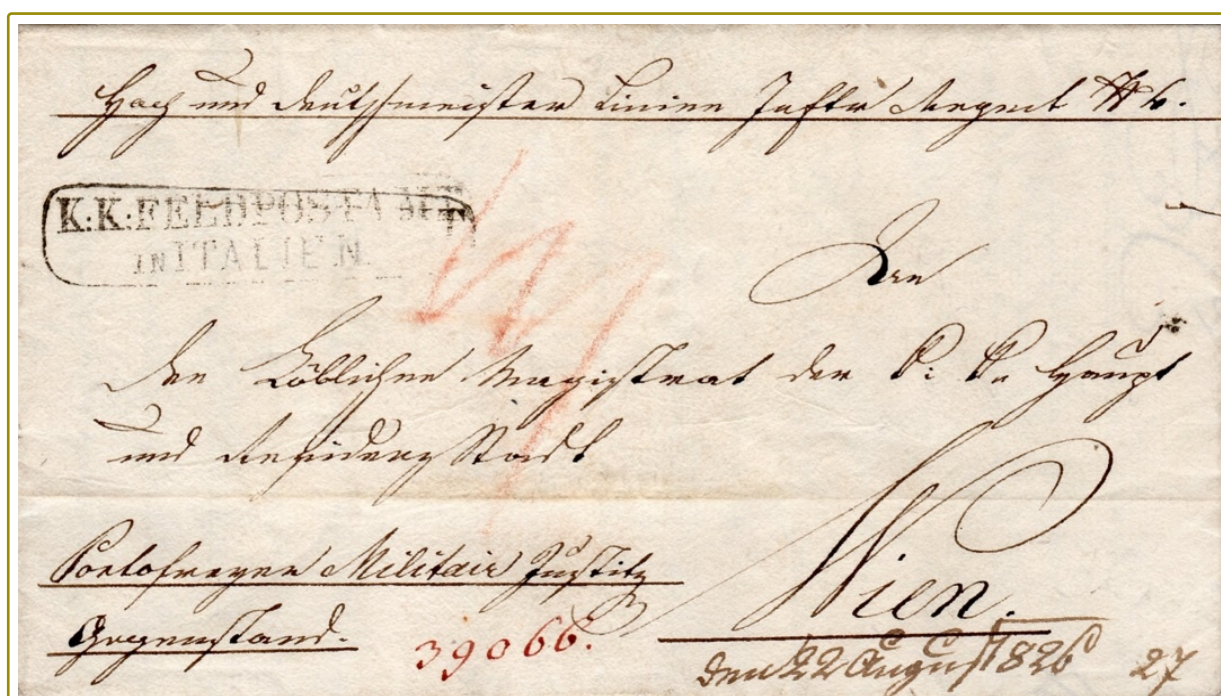 Hoch und Deutschmeister Linien Inftr Regmt № 4.
K:K:FELDPOSTAMT
IN ITALIEN
An
den Löblichen Magistrat der K: K. Haupt
und Residenz Stadt
Wien.
Portofreyer Militair Justitz
Gegenstand.
39066.
den 22 August 1826
27